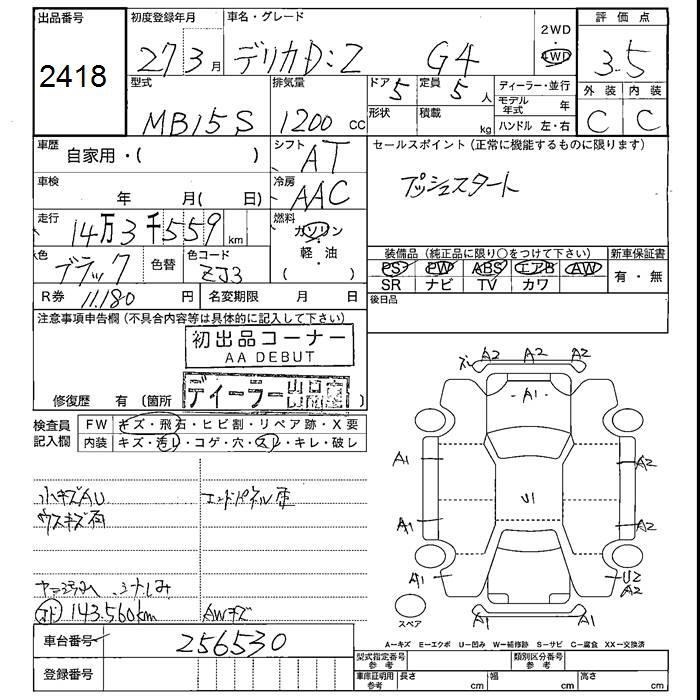 出品番号
2418
初度登録年月
27 3月
車名・グレード
デリカD:2 G4
2WD
4WD
評価点
3.5
外装 内装
C C
型式
MB15S
排気量
1200 cc
ドア 5
形状
定員 5人
積載 kg
ディーラー・並行
モデル年式 年
ハンドル 左・右
車歴
自家用・( )
シフト
AT
セールスポイント(正常に機能するものに限ります)
プッシュスタート
車検
年 月( 日)
冷房
AAC
走行
14万3千559 km
燃料
ガソリン
・
軽・油
( ・ )
色
ブラック
色替
色コード
ZJ3
装備品(純正品に限り○をつけて下さい)
PS PW ABS エアB AW
SR ナビ TV カワ
新車保証書
有・無
R券 11.180 円
名変期限 月 日
後日品
注意事項申告欄(不具合内容等は具体的に記入して下さい)
初出品コーナー
AA DEBUT
ディーラー出品車
修復歴 有(箇所 )
検査員
記入欄
FW キズ・飛石・ヒビ割・リペア跡・X要
内装 キズ・汚レ・コゲ・穴・スレ・キレ・破レ
小キズAU
ウスキズ有
エンドパネル
シートしみ
143.560km
AWキズ
A2 A2 A2
A1
A1 A2
U1
A1 A2
A1 U2
A2
A1 A1
スペア
車台番号
256530
登録番号
A=キズ E=エクボ U=凹み W=補修跡 S=サビ C=腐食 XX=交換済
型式指定番号
参考
類別区分番号
参考
車庫証明用
参考
長さ cm
幅 cm
高さ cm